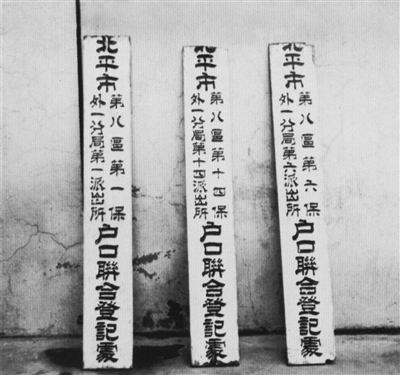 北平市
第八區第一保
外一分局第一派出所
户口聯合登記處
北平市
第八區第十四保
外一分局第十四派出所
户口聯合登記處
北平市
第八區第六保
外一分局第六派出所
户口聯合登記處